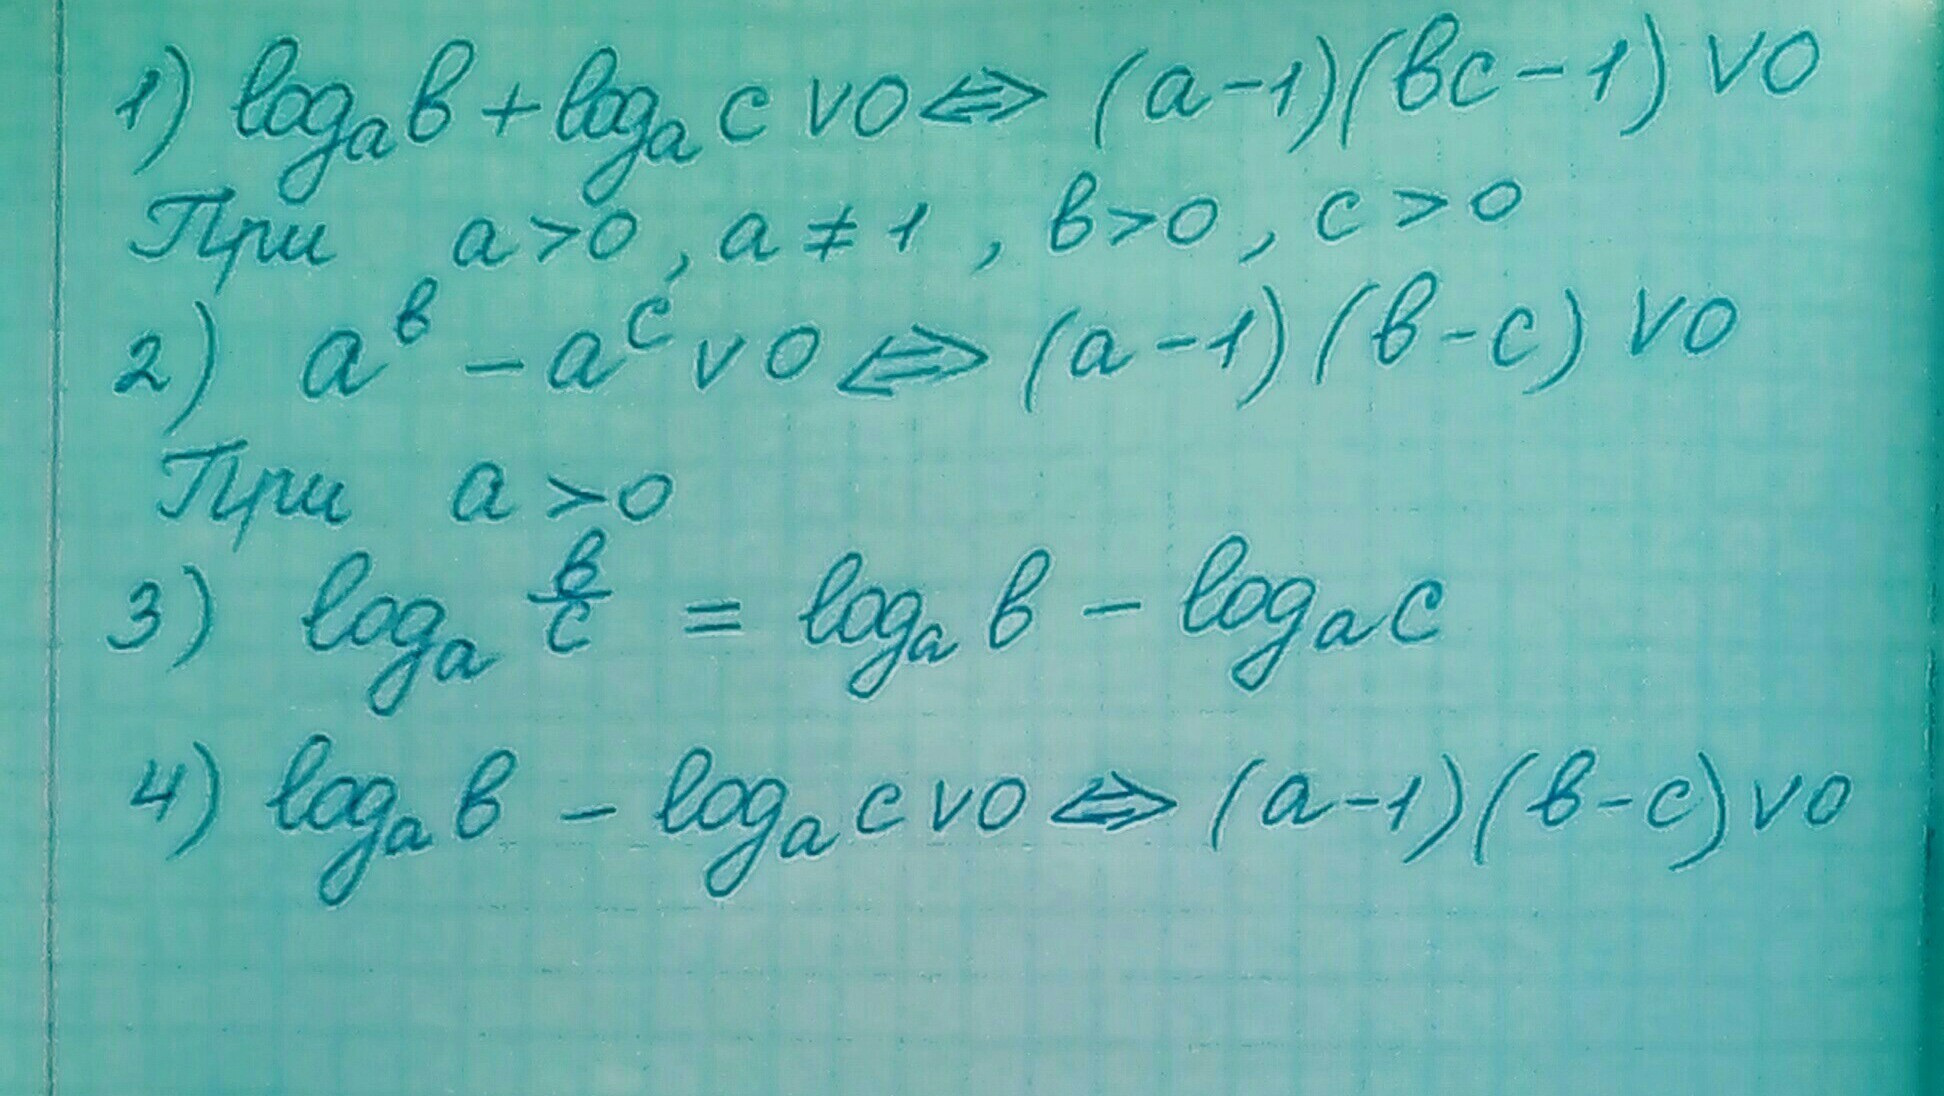 1) log_a b + log_a c ∨ 0 ⇔ (a-1)(bc-1) ∨ 0
При a>0, a≠1, b>0, c>0
2) a^b - a^c ∨ 0 ⇔ (a-1)(b-c) ∨ 0
При a>0
3) log_a b/c = log_a b - log_a c
4) log_a b - log_a c ∨ 0 ⇔ (a-1)(b-c) ∨ 0